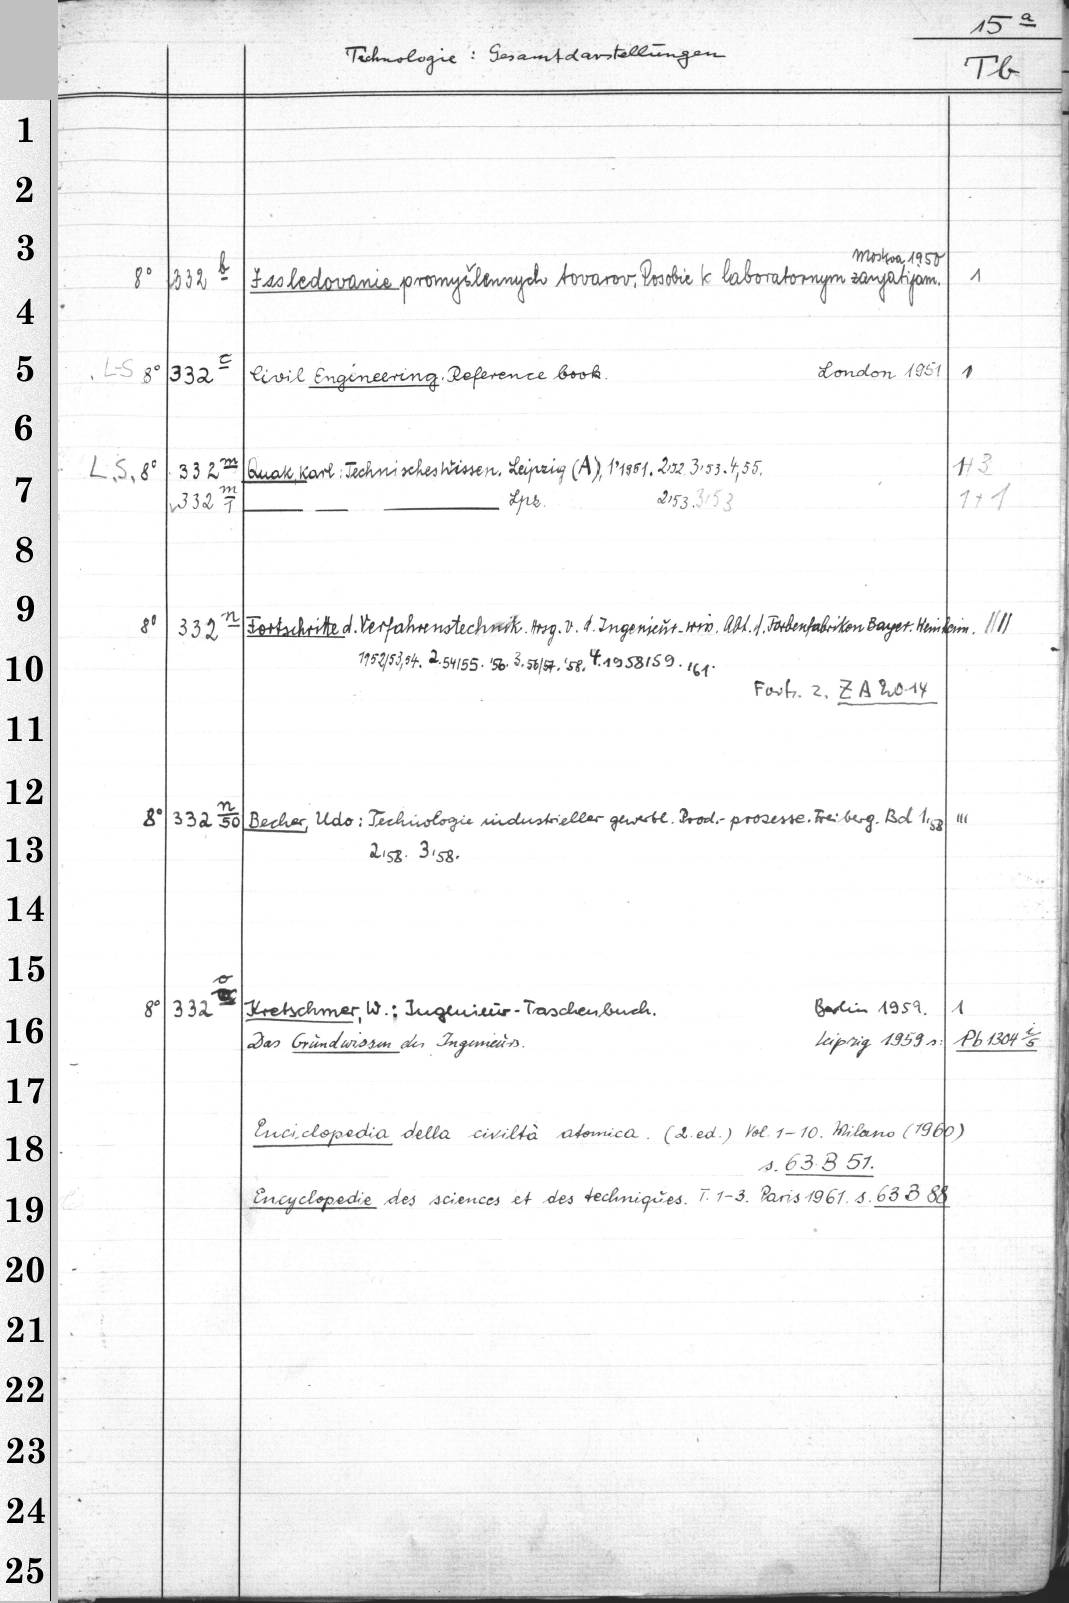 15 a
Technologie : Gesamtdarstellungen
Tb
1
2
3
Moskva 1950
8° 332 b Issledovanie promyšlennych tovarov. Posobie k laboratornym zanjatijam. 1
4
5
L-S 8° 332 c Civil Engineering. Reference book. London 1951 1
6
L.S. 8° 332 m Quak, Karl: Technisches Wissen. Leipzig (A), 1'1951. 2'52 3'53. 4,55. 1+3
7
332 m/1 Lpz. 2'53. 3'53 1+1
8
9
8° 332 n Fortschritte d. Verfahrenstechnik. Hrsg. v. d. Ingenieur-wiss. Abt. d. Farbenfabriken Bayer. Weinheim.
10
1952/53,54. 2.54/55. '56. 3.56/57. '58. 4.1958/59. '61.
Forts. s. ZA 2014
11
12
8° 332 n/50 Becher, Udo: Technologie industrieller gewerbl. Prod.-prozesse. Freiberg. Bd 1,58 III
13
2,58. 3,58.
14
15
8° 332 o Kretschmer, W.: Ingenieur-Taschenbuch. Berlin 1959. 1
16
Das Grundwissen des Ingenieurs. Leipzig 1959 s: Pb 1304 i/5
17
18
Enciclopedia della civiltà atomica. (2. ed.) Vol. 1-10. Milano (1960)
s. 63 B 51.
19
Encyclopedie des sciences et des techniques. T. 1-3. Paris 1961. s. 63 B 88
20
21
22
23
24
25